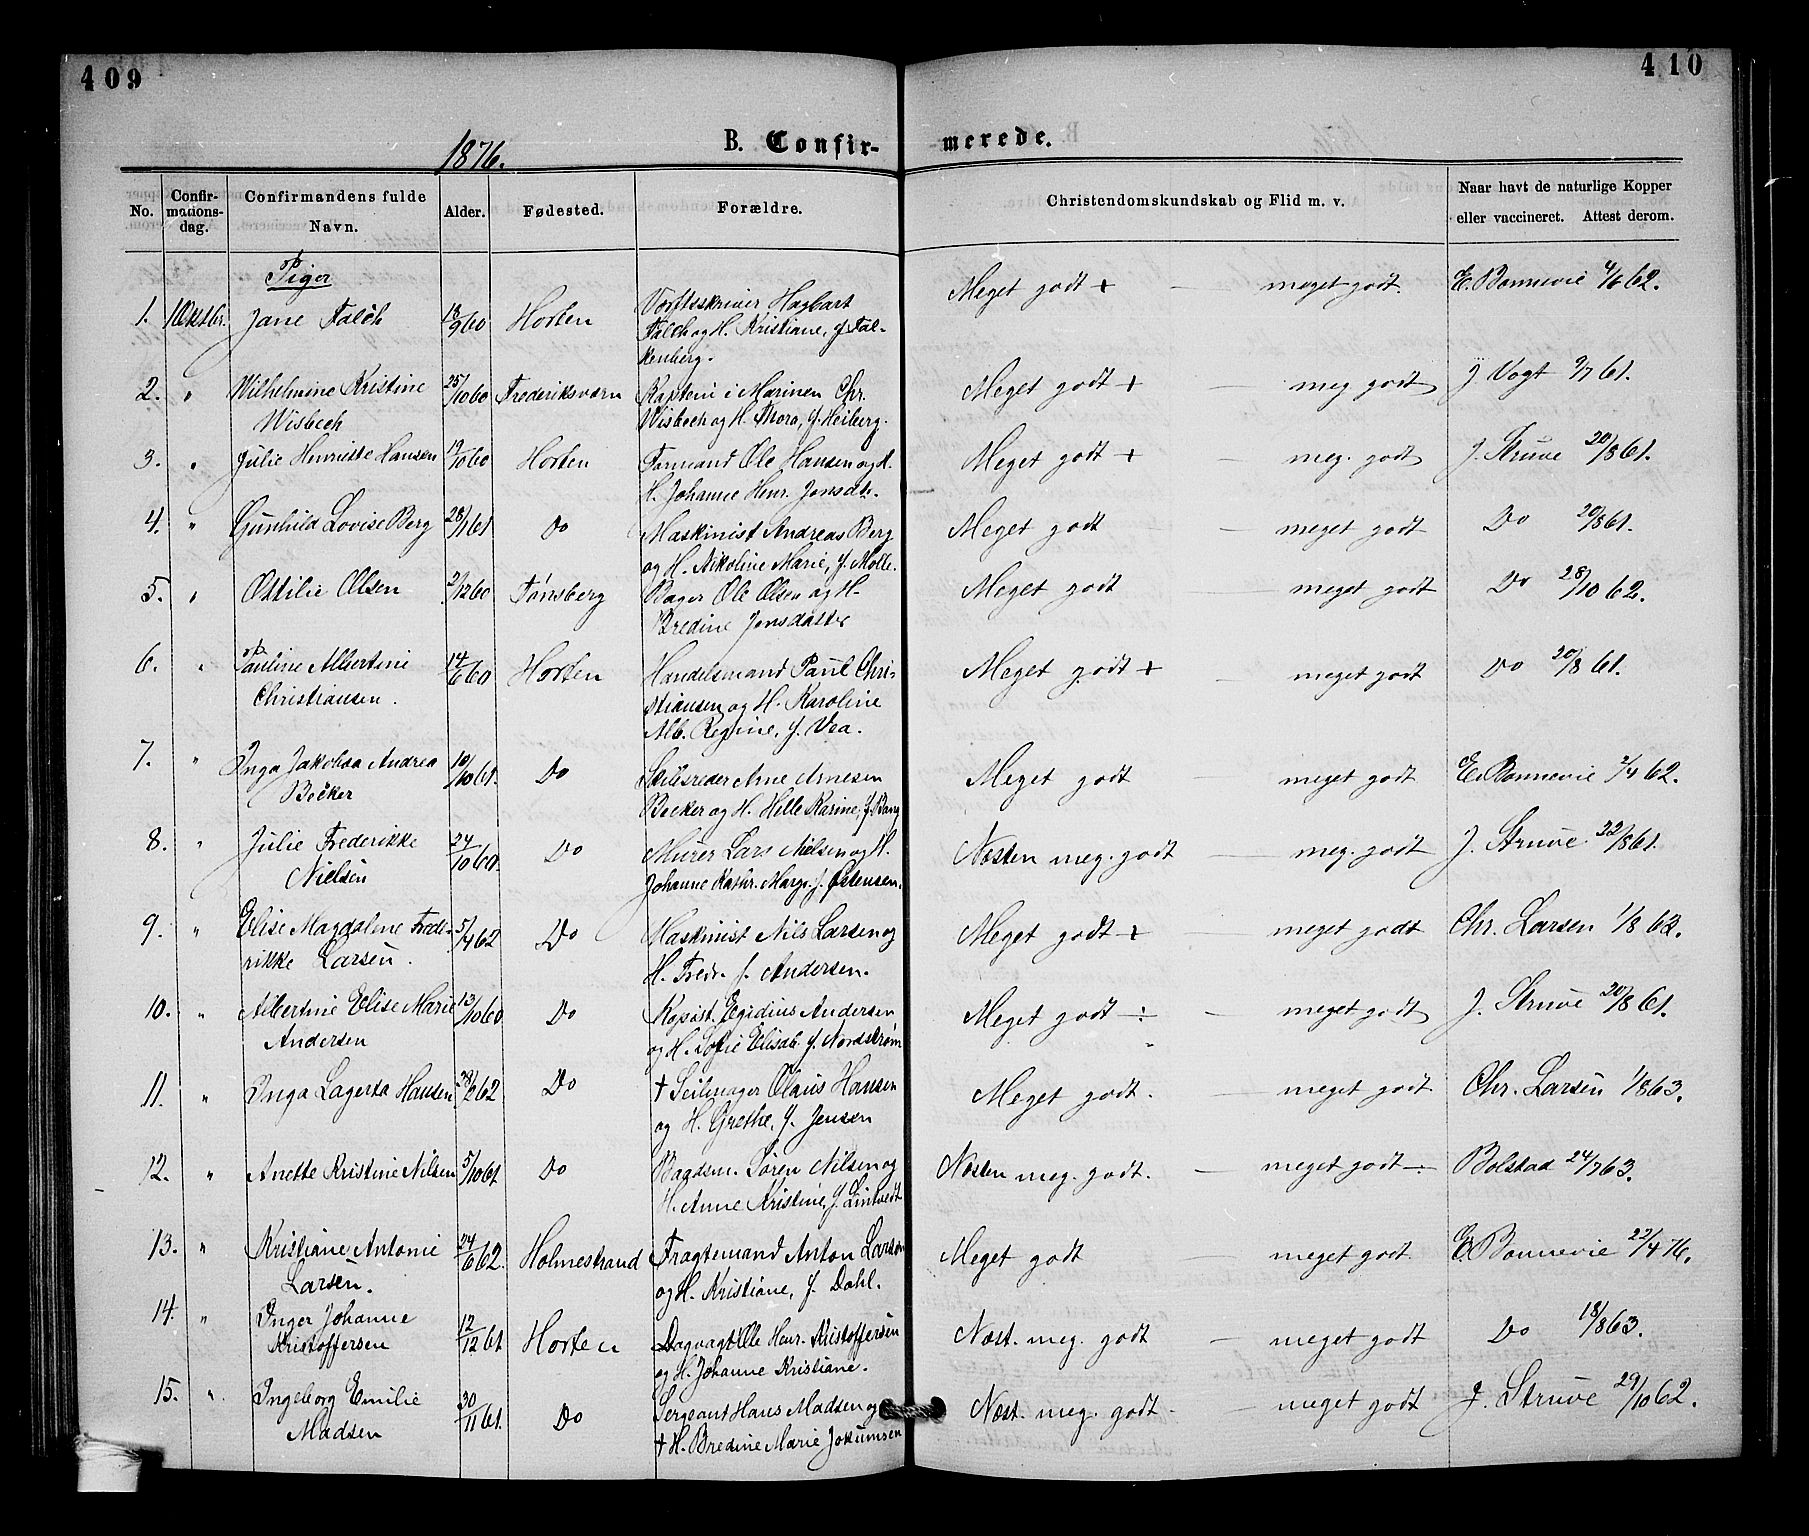 409
410
1876.
B. Confir-
merede.
No.
Confir-
mations-
dag.
Confirmandens fulde
Navn.
Alder.
Fødested.
Forældre.
Christendomskundskab og Flid m. v.
Naar havt de naturlige Kopper
eller vaccineret. Attest derom.
Piger
1. 1 Oktbr. Jane Falch 18/9 60 Horten Værftsskriver Hagbart Meget godt + — meget godt. E. Bonnevie 4/6 62.
Falch og H. Kristiane, f. Fal-
kenberg.
2. " Wilhelmine Kristine 25/10 60 Frederiksværn Kaptein i Marinen Chr. Meget godt + — meg godt J Vogt 9/7 61.
Wisbech Wisbech og H. Thora, f. Heiberg.
3. " Julie Henriette Hansen 19/10 60 Horten Formand Ole Hansen og H. Meget godt + — meg. godt J. Struve 20/8 61.
H. Johanne Henr. Jonsdtr.
4. " Gunhild Lovise Berg 28/1 61 Do Maskinist Andreas Berg Meget godt — meget godt Do 20/8 61.
og H. Nikoline Marie, f. Molle.
5. " Ottilie Olsen 2/12 60 Tønsberg Bager Ole Olsen og H. Meget godt — meget godt Do 28/10 62.
Bredine Jonsdatter
6. " Pauline Albertine 14/6 60 Horten Handelsmand Paul Chri- Meget godt + — meget godt Do 20/8 61.
Christiansen. stiansen og H. Karoline
Alb. Regine, f. Vea.
7. " Inga Jakobea Andrea 10/10 61. Do Skibsreder Arne Arnesen Meget godt meget godt E. Bonnevie 2/4 62.
Becker Becker og H. Helle Karine, f. Bang
8. " Julie Frederikke 24/10 60. Do Murer Lars Nielsen og H. Næsten meg. godt — meg. godt J. Struve 22/8 61.
Nielsen Johanne Kathr. Marg. f. Østensen.
9. " Elise Magdaline Frede- 5/4 62 Do Maskinist Nils Larsen og Meget godt + — meget godt Chr. Larsen 1/8 63.
rikke Larsen. H. Fredr. f. Andersen.
10. " Albertine Elise Marie 13/10 60 Do Kopist Egidius Andersen Meget godt ÷ — meget godt J. Struve 20/8 61.
Andersen og H. Sofie Elisab. f. Nordstrøm
11. " Inga Lagerta Hansen 62 Do † Seilmager Olaus Hansen Meget godt. — meget godt Chr. Larsen 1/8 63.
og H. Grethe, f. Jensen
12. " Anette Kristine Nilsen 5/10 61 Do Baadsm. Søren Nilsen og Næsten meg. godt. — meget godt ÷ Bolstad 24/7 63.
H. Anne Kristine, f. Lintvedt
13. " Kristiane Antonie 24/6 62. Holmestrand Fragtemand Anton Larsen Meget godt — meget godt. E. Bonnevie 22/4 76.
Larsen. og H. Kristiane, f. Dahl.
14. " Inger Johanne 12/12 61 Horten Dagvagt Ole Henr. Kristoffersen Næst. meg. godt — meget godt Do 18/8 63.
Kristoffersen og H. Johanne Kristiane.
15. " Ingeborg Emilie 30/11 61. Do Sergeant Hans Madsen og Næst. meg. godt. — meget godt J. Struve 29/10 62.
Madsen † H. Bredine Marie Jokumsen